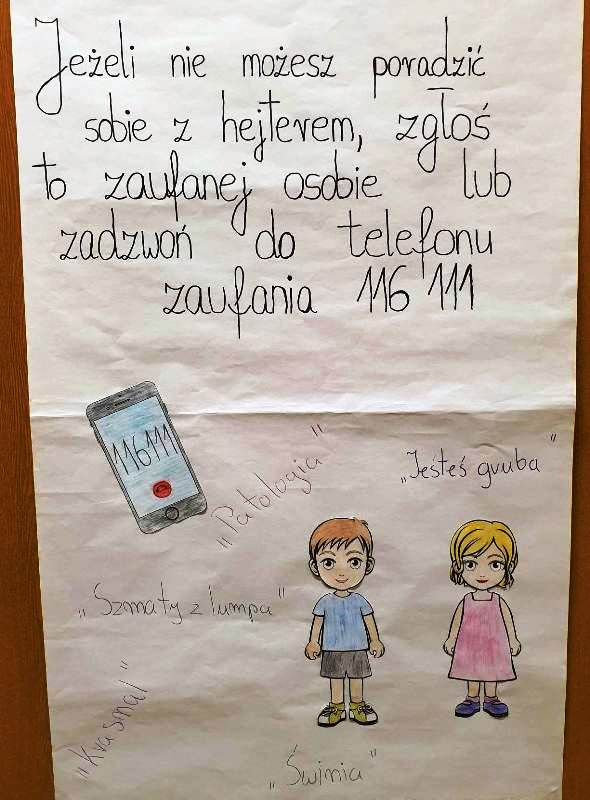 Jeżeli nie możesz poradzić
sobie z hejterem, zgłoś
to zaufanej osobie lub
zadzwoń do telefonu
zaufania 116 111
116111
„Patologia"
„Jesteś gruba"
„Szmaty z lumpa"
„Krasnal"
„Świnia"